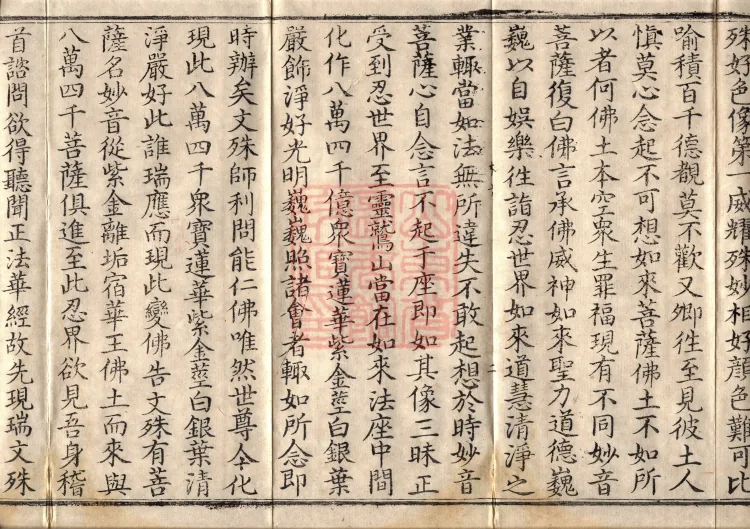 殊好色像第一威耀殊妙相好顔色難可比
喻積百千德觀莫不歡又卿徃至見彼土人
慎莫心念起不可想如來菩薩佛土不如所
以者何佛土本空衆生罪福現有不同妙音
菩薩復白佛言承佛威神如來聖力道德巍
巍以自娛樂徃詣忍世界如來道慧清淨之
業輙當如法無所違失不敢起想於時妙音
菩薩心自念言不起于座即如其像三昧正
受到忍世界至靈鷲山當在如來法座中間
化作八萬四千億衆寶蓮華紫金莖白銀葉
嚴飾淨好光明巍巍照諸會者輙如所念即
時辦矣文殊師利問能仁佛唯然世尊今化
現此八萬四千衆寶蓮華紫金莖白銀葉清
淨嚴好此誰瑞應而現此變佛告文殊有菩
薩名妙音從紫金離垢宿華王佛土而來與
八萬四千菩薩俱進至此忍界欲見吾身稽
首諮問欲得聽聞正法華經故先現瑞文殊